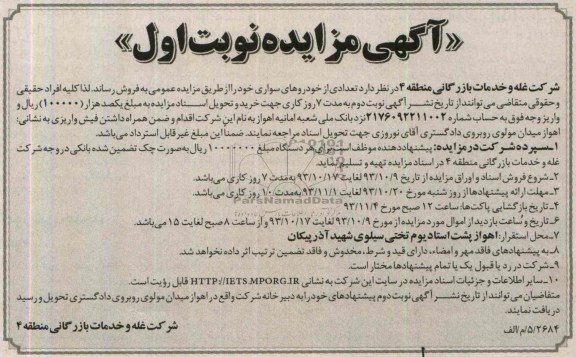 «آگهی مزایده نوبت اول»
شرکت غله و خدمات بازرگانی منطقه ۴ در نظر دارد تعدادی از خودروهای سواری خود را از طریق مزایده عمومی به فروش رساند. لذا کلیه افراد حقیقی
و حقوقی متقاضی می توانند از تاریخ نشر آگهی نوبت دوم به مدت ۷ روز کاری جهت خرید و تحویل اسناد مزایده به مبلغ یکصد هزار (۱۰۰۰۰۰) ریال و
واریز وجه فوق به حساب شماره ۲۱۷۶۰۹۲۲۱۱۰۰۲ نزد بانک ملی شعبه امانیه اهواز به نام این شرکت اقدام و ضمن همراه داشتن فیش واریزی به نشانی:
اهواز میدان مولوی روبروی دادگستری آقای نوروزی جهت تحویل اسناد مراجعه نمایند. ضمنا این مبلغ غیر قابل استرداد می باشد.
۱ـ سپرده شرکت در مزایده: پیشنهاددهنده موظف است برای هر دستگاه مبلغ ۱۰۰۰۰۰۰۰ ریال به صورت چک تضمین شده بانکی در وجه شرکت
غله و خدمات بازرگانی منطقه ۴ در اسناد مزایده تهیه و تسلیم نماید.
۲ـ شروع فروش اسناد و اوراق مزایده از تاریخ ۹۳/۱۰/۹ لغایت ۹۳/۱۰/۱۷ به مدت ۷ روز کاری می باشد.
۳ـ مهلت ارائه پیشنهادها از روز شنبه مورخ ۹۳/۱۰/۲۰ لغایت ۹۳/۱۱/۱ به مدت ۱۰ روز کاری می باشد.
۴ـ تاریخ بازگشایی پاکت ها: ساعت ۱۲ صبح مورخ ۹۳/۱۱/۴
۶ـ تاریخ و ساعت بازدید از اموال مورد مزایده از مورخ ۹۳/۱۰/۹ لغایت ۹۳/۱۰/۱۷ و از ساعت ۸ صبح لغایت ۱۵ می باشد.
۷ـ محل استقرار: اهواز پشت استادیوم تختی سیلوی شهید آذرپیکان
۸ـ به پیشنهادهای فاقد مهر و امضاء، دارای قید و شرط، مخدوش و فاقد تضمین ترتیب اثر داده نخواهد شد.
۹ـ شرکت در رد یا قبول یک یا تمام پیشنهادها مختار است.
۱۰ـ سایر اطلاعات و جزئیات اسناد مزایده در سایت این شرکت به نشانی HTTP://IETS.MPORG.IR قابل رؤیت است.
متقاضیان می توانند از تاریخ نشر آگهی نوبت دوم پیشنهادهای خود را به دبیرخانه شرکت واقع در اهواز میدان مولوی روبروی دادگستری تحویل و رسید
دریافت نمایند.
شرکت غله و خدمات بازرگانی منطقه ۴
۵/۲۶۸۴/م/الف